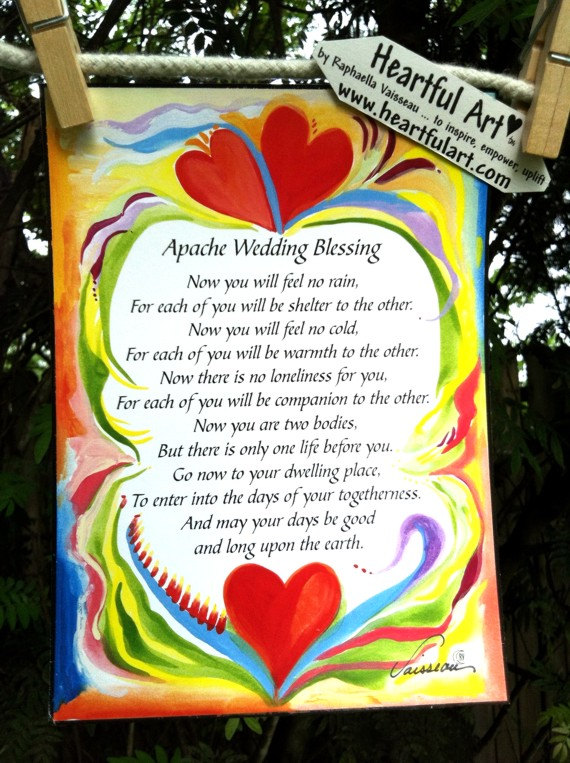 Heartful Art
by Raphaella Vaisseau ... to inspire, empower, uplift
www.heartfulart.com
Apache Wedding Blessing
Now you will feel no rain,
For each of you will be shelter to the other.
Now you will feel no cold,
For each of you will be warmth to the other.
Now there is no loneliness for you,
For each of you will be companion to the other.
Now you are two bodies,
But there is only one life before you.
Go now to your dwelling place,
To enter into the days of your togetherness.
And may your days be good
and long upon the earth.
Vaisseau